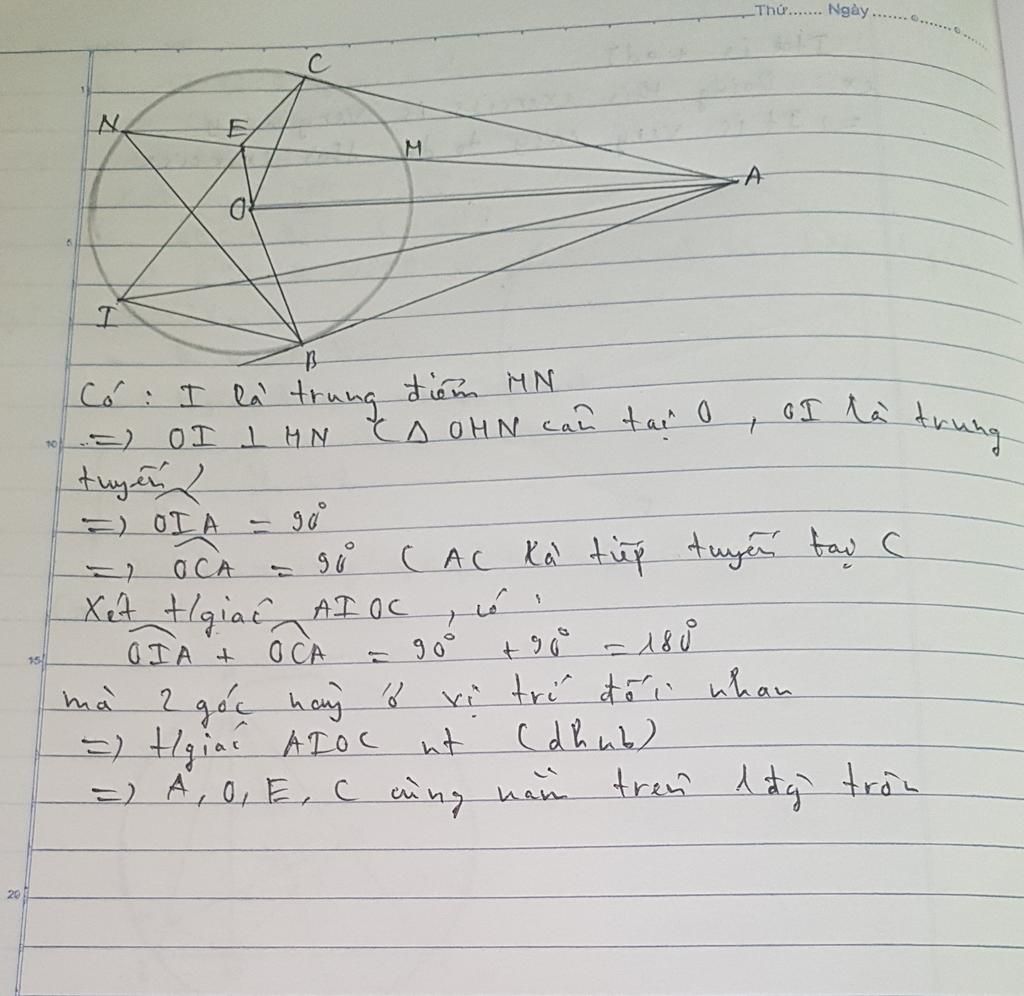 Thứ....... Ngày...............
C
N
E
M
A
O
I
B
Có : I là trung điểm MN
=> OI ⊥ MN ( Δ OMN cân tại O , OI là trung
tuyến )
=> OIA = 90°
=> OCA = 90° ( AC là tiếp tuyến tại C
Xét t/giác AIOC , có :
OIA + OCA = 90° + 90° = 180°
mà 2 góc này ở vị trí đối nhau
=> t/giác AIOC nt (dhnb)
=> A, O, E, C cùng nằm trên 1 đg tròn
10
15
20